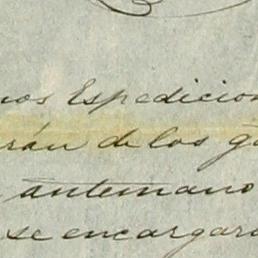 nos Espedicion
rán de los ga
antemano
se encargara